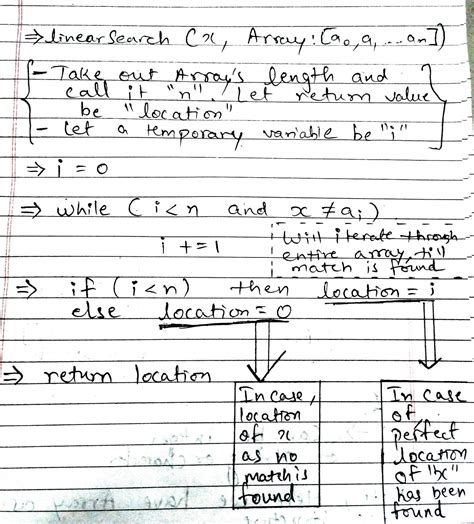 ⇒ linearSearch (x, Array: [a₀, a, ... aₙ])
- Take out Array's length and
call it "n". Let return value
be "location"
- Let a temporary variable be "i"
⇒ i = 0
⇒ while (i < n and x ≠ aᵢ)
i += 1
Will iterate through
entire array, till
match is found
⇒ if (i < n) then location = i
else location = 0
⇒ return location
In case,
location
of x
as no
match is
found
In case
of
perfect
location
of "x"
has been
found